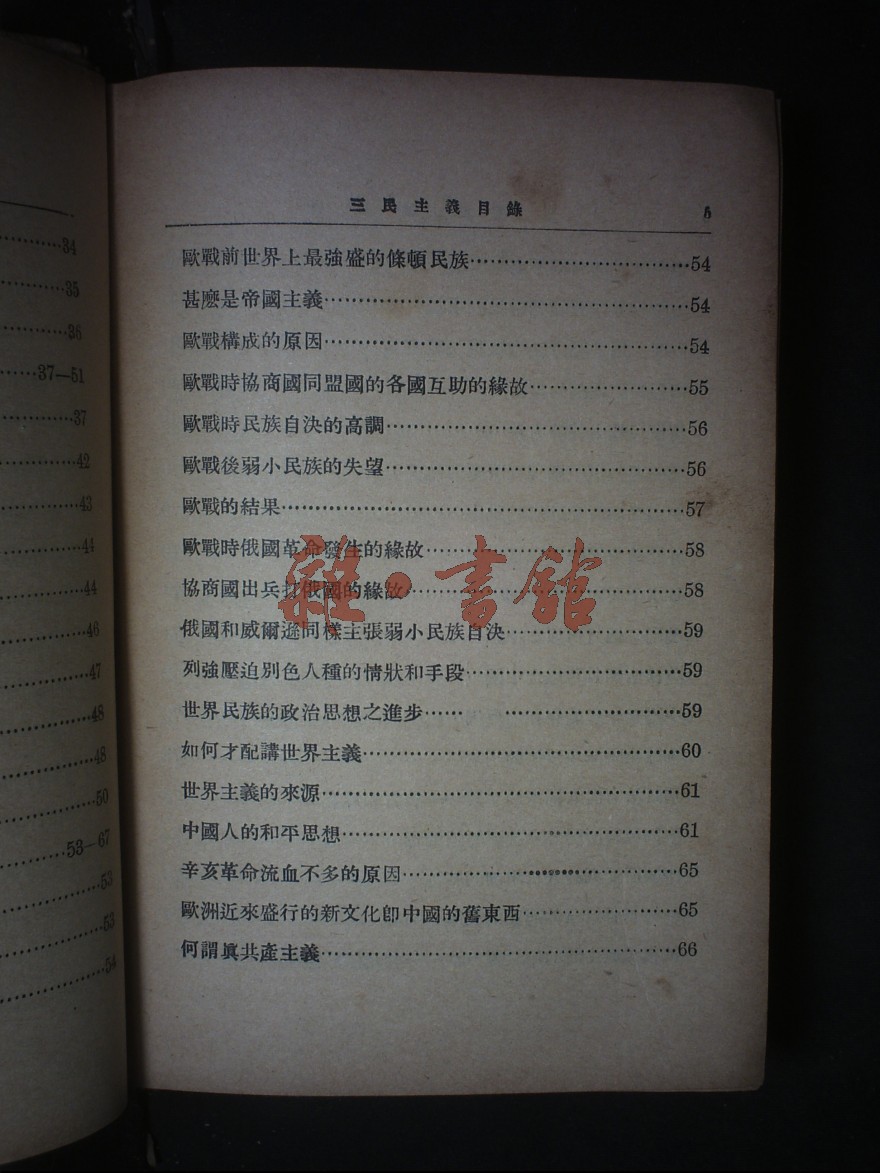 34
35
36
37—51
37
42
43
44
44
46
47
48
48
50
53—67
53
53
54
三民主義目錄
歐戰前世界上最強盛的條頓民族……54
甚麽是帝國主義……54
歐戰構成的原因……54
歐戰時協商國同盟國的各國互助的緣故……55
歐戰時民族自決的高調……56
歐戰後弱小民族的失望……56
歐戰的結果……57
歐戰時俄國革命發生的緣故……58
協商國出兵打俄國的緣故……58
俄國和威爾遜同樣主張弱小民族自決……59
列強壓迫別色人種的情狀和手段……59
世界民族的政治思想之進步……59
如何才配講世界主義……60
世界主義的來源……61
中國人的和平思想……61
辛亥革命流血不多的原因……65
歐洲近來盛行的新文化卽中國的舊東西……65
何謂眞共產主義……66
雜·書館